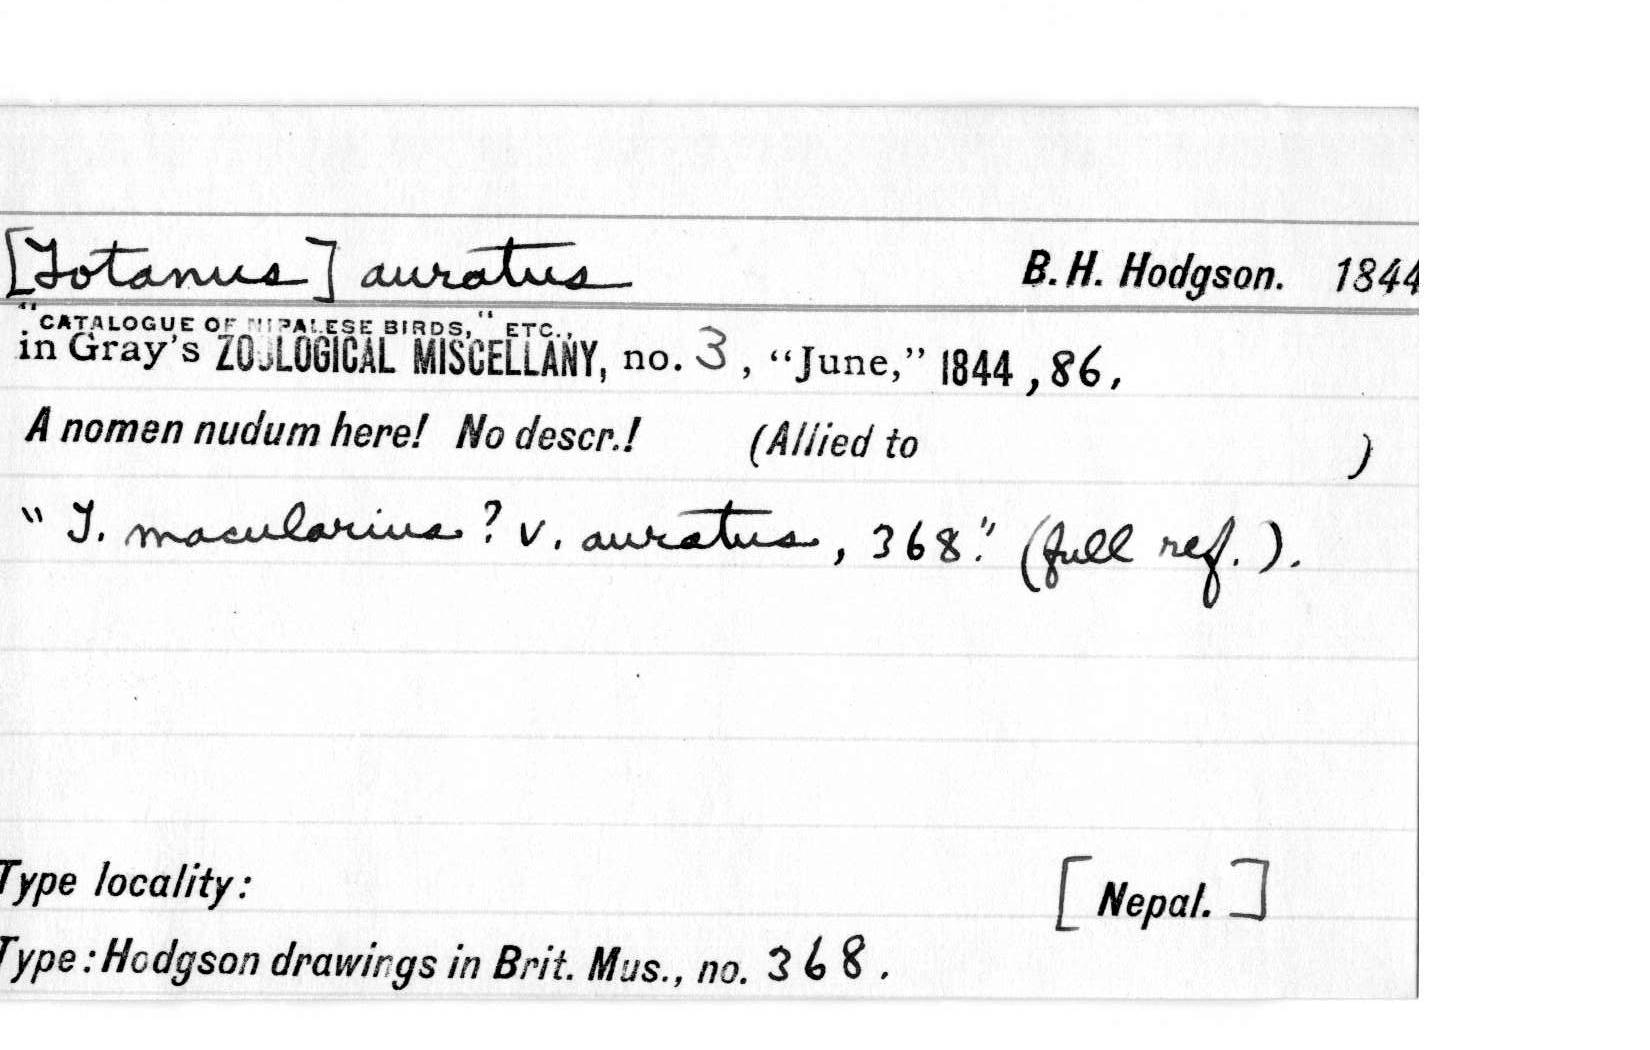 [Totanus] auratus B. H. Hodgson. 1844
"CATALOGUE OF NIPALESE BIRDS," ETC.,
in Gray's ZOOLOGICAL MISCELLANY, no. 3, "June," 1844, 86,
A nomen nudum here! No descr.! (Allied to )
"T. macularius? v. auratus, 368." (full ref.).
Type locality: [Nepal.]
Type: Hodgson drawings in Brit. Mus., no. 368.